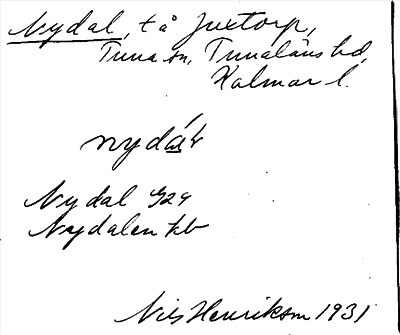 Nydal, t å Juxtorp,
Tuna sn, Tunaläns hd,
Kalmar l.
Nydal
Nydalen kb
Nils Henrikson 1931